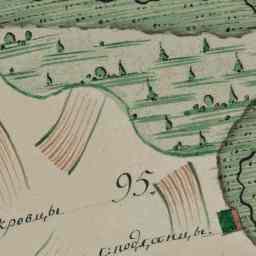 95.
кровцы
сподданцы.